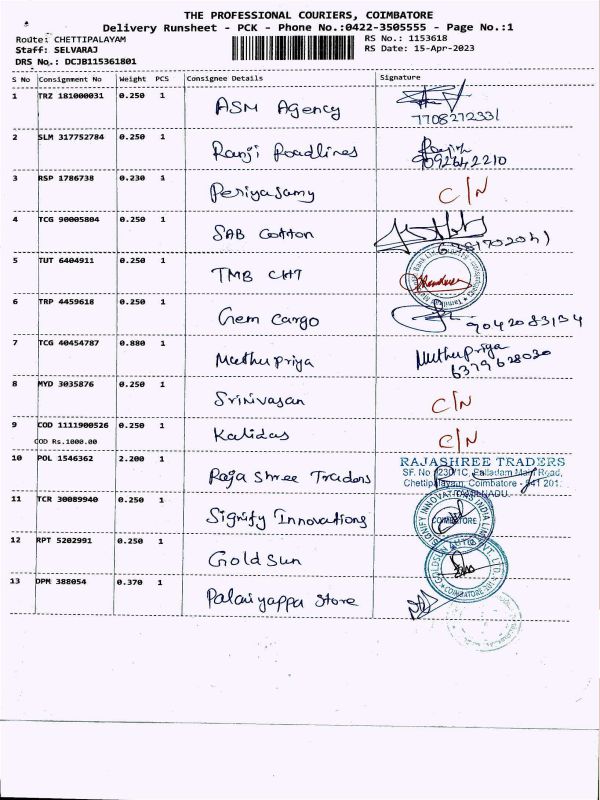 THE PROFESSIONAL COURIERS, COIMBATORE
Delivery Runsheet - PCK - Phone No.:0422-3505555 - Page No.:1
Route: CHETTIPALAYAM
RS No.: 1153618
Staff: SELVARAJ
RS Date: 15-Apr-2023
DRS No.: DCJB115361801
S No Consignment No Weight PCS Consignee Details Signature
1 TRZ 181000031 0.250 1 ASM Agency
7708272331
2 SLM 317752784 0.250 1 Ranji Roadlines
9092642210
3 RSP 1786738 0.230 1 Periyasamy C/N
4 TCG 90005804 0.250 1 SAB Cotton
5 TUT 6404911 0.250 1 TMB CHT
6 TRP 4459618 0.250 1 Gem Cargo
9042083134
7 TCG 40454787 0.880 1 Muthupriya Muthupriya
6379628020
8 MYD 3035876 0.250 1 Srinivasan C/N
9 COD 1111900526 0.250 1 Kalidas C/N
COD Rs.1000.00
10 POL 1546362 2.200 1 Raja Shree Traders RAJASHREE TRADERS
SF. No 230/1C, Palladam Main Road,
Chettipalayam, Coimbatore - 641 201.
TAMILNADU.
11 TCR 30089940 0.250 1 Signify Innovations SIGNIFY INNOVATIONS INDIA LIMITED
COIMBATORE
12 RPT 5202991 0.250 1 Goldsun
COIMBATORE
13 DPM 388054 0.370 1 Palaiyappa Store